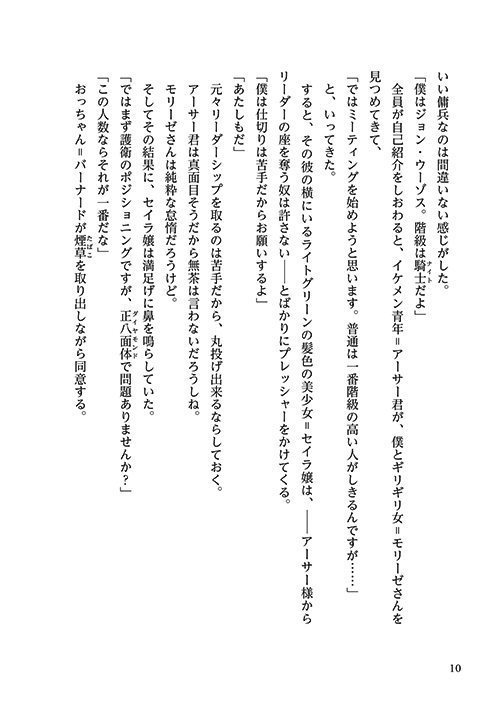 いい傭兵なのは間違いない感じがした。
「僕はジョン・ウーゾス。階級は騎士だよ」
ナイト
全員が自己紹介をしおわると、イケメン青年＝アーサー君が、僕とギリギリ女＝モリーゼさんを
見つめてきて、
「ではミーティングを始めようと思います。普通は一番階級の高い人がしきるんですが……」
と、いってきた。
すると、その彼の横にいるライトグリーンの髪色の美少女＝セイラ嬢は、――アーサー様から
リーダーの座を奪う奴は許さない――とばかりにプレッシャーをかけてくる。
「僕は仕切りは苦手だからお願いするよ」
「あたしもだ」
元々リーダーシップを取るのは苦手だから、丸投げ出来るならしておく。
アーサー君は真面目そうだから無茶は言わないだろうしね。
モリーゼさんは純粋な怠惰だろうけど。
そしてその結果に、セイラ嬢は満足げに鼻を鳴らしていた。
「ではまず護衛のポジショニングですが、正八面体で問題ありませんか？」
ダイヤモンド
「この人数ならそれが一番だな」
おっちゃん＝バーナードが煙草を取り出しながら同意する。
たばこ
10